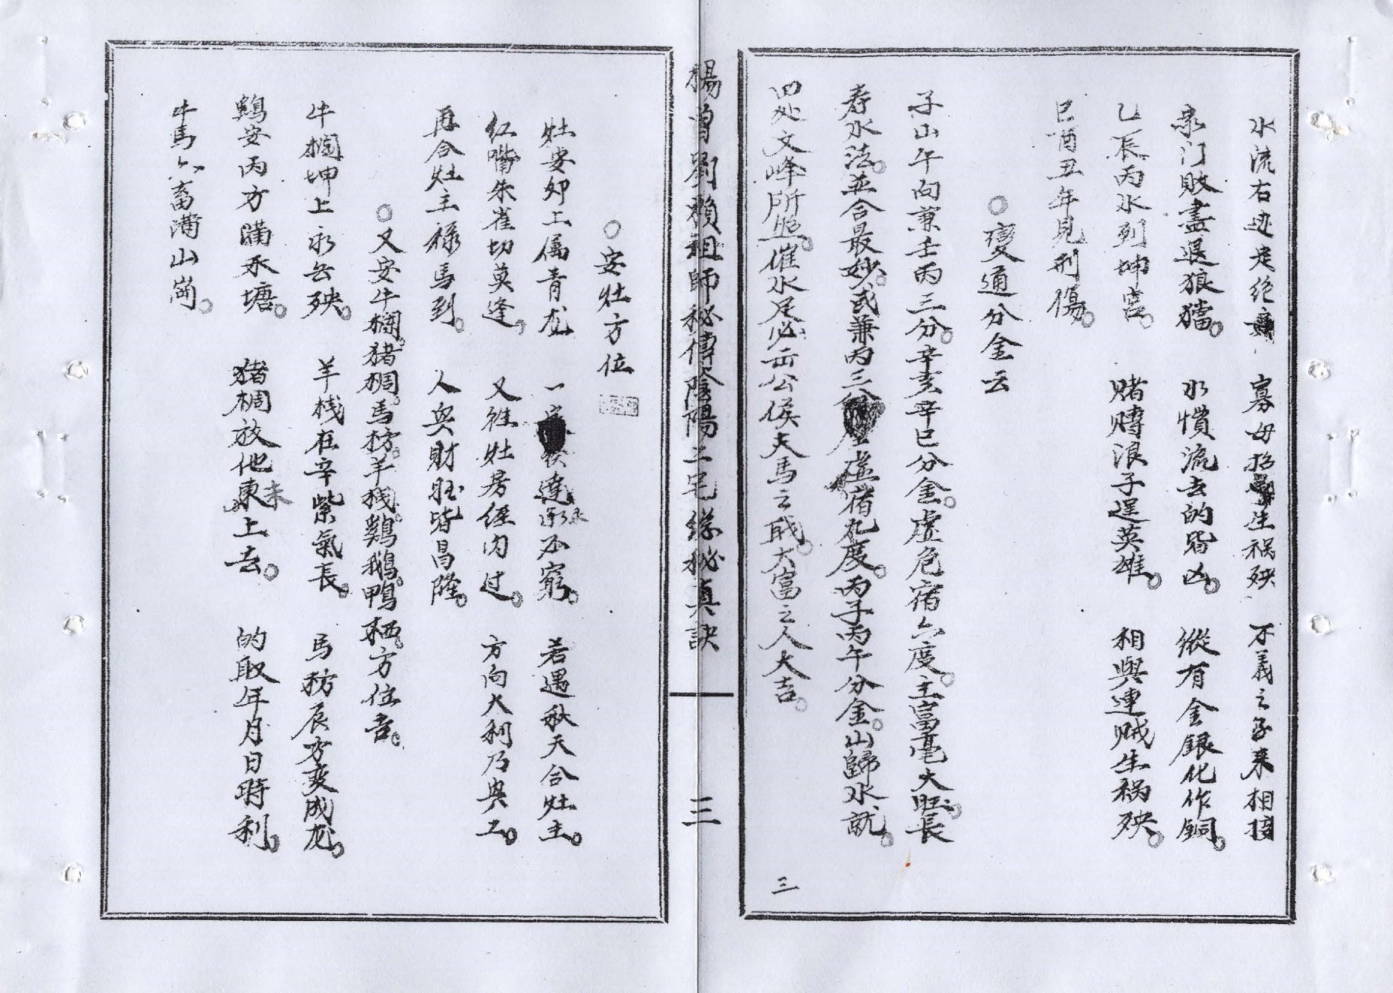 水流右边走绝 寡母招 生祸殃 不義之子来相接
家门敗盡退狼犺。 水慣流去的皆凶。 縱有金銀化作銅。
乙辰丙水到坤宫。 賭賻浪子逞英雄。 相與連贼生祸殃。
巳酉丑年見刑傷。
○變通分金云
子山午向兼壬丙三分。辛亥辛巳分金。虚危宿六度。主富毫大旺。長
寿水法。並合最妙。或兼丙三 虚宿九度。丙子丙午分金。山歸水就。
四处文峰所照。催水足必出公侯夫馬之戝。大富之人大吉。
三
楊曾劉賴祖師秘傳陰陽二宅緣秘真訣
三
○安灶方位
灶安卯上属青龙 一 達 永不窮。 若遇秋天合灶主。
红嘴朱雀切莫逢。 又祥灶房経内过。 方向大利乃與工。
再合灶主禄馬到。 人與財旺皆昌隆。
○又安牛欄。猪欄。馬枋。羊栈。鷄鵝。鴨栖。方位吉。
牛欄坤上永無殃。 羊栈在辛紫氣長。 馬枋辰方变成龙。
鷄安丙方滿禾塘。 猪欄放他東未上去。 的取年月日時利。
牛馬六畜满山崗。